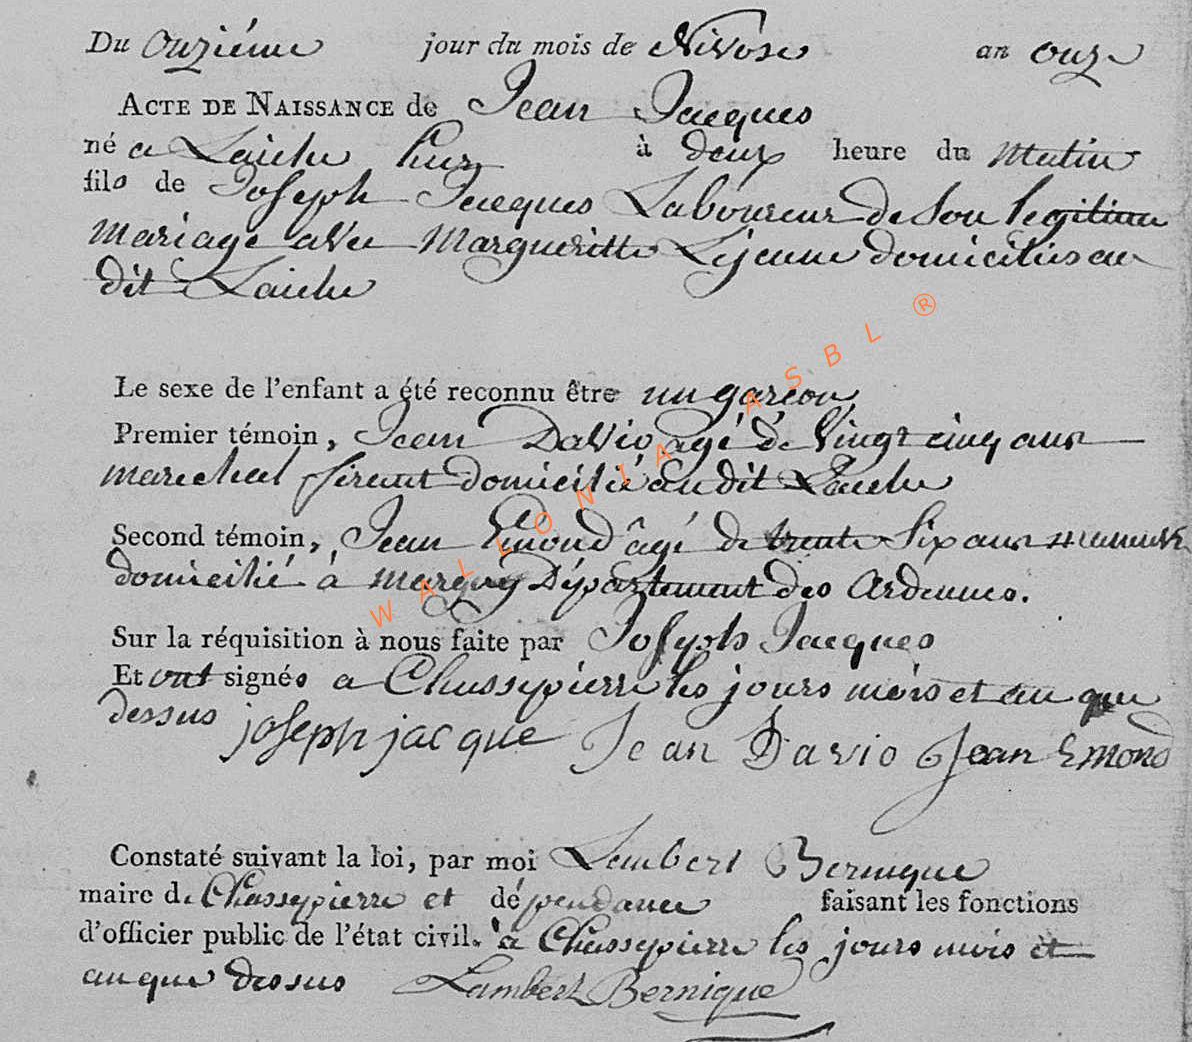 Du Onziéme jour du mois de Nivose an onze
ACTE DE NAISSANCE de Jean Jacques
né a Laiche hier à deux heure du Matin
fils de Joseph Jacques Laboureur de Son legitime
Mariage avec Margueritte Lejeune domiciliés au
dit Laiche
Le sexe de l'enfant a été reconnu être un garcon
Premier témoin, Jean Davio agé de Vingt cinq ans
marechal ferant domicilié au dit Laiche
Second témoin, Jean Emond âgé de trente Six ans
domicilié à Margny Département des Ardennes.
Sur la réquisition à nous faite par Joseph Jacques
Et ont signés a Chassepierre les jours mois et an que
dessus joseph jacque Jean Davio Jean Emond
Constaté suivant la loi, par moi Lambert Bernique
maire de Chassepierre et dépendance faisant les fonctions
d'officier public de l'état civil. a Chassepierre les jours mois et
an que dessus Lambert Bernique
WALLONIA ASBL ®